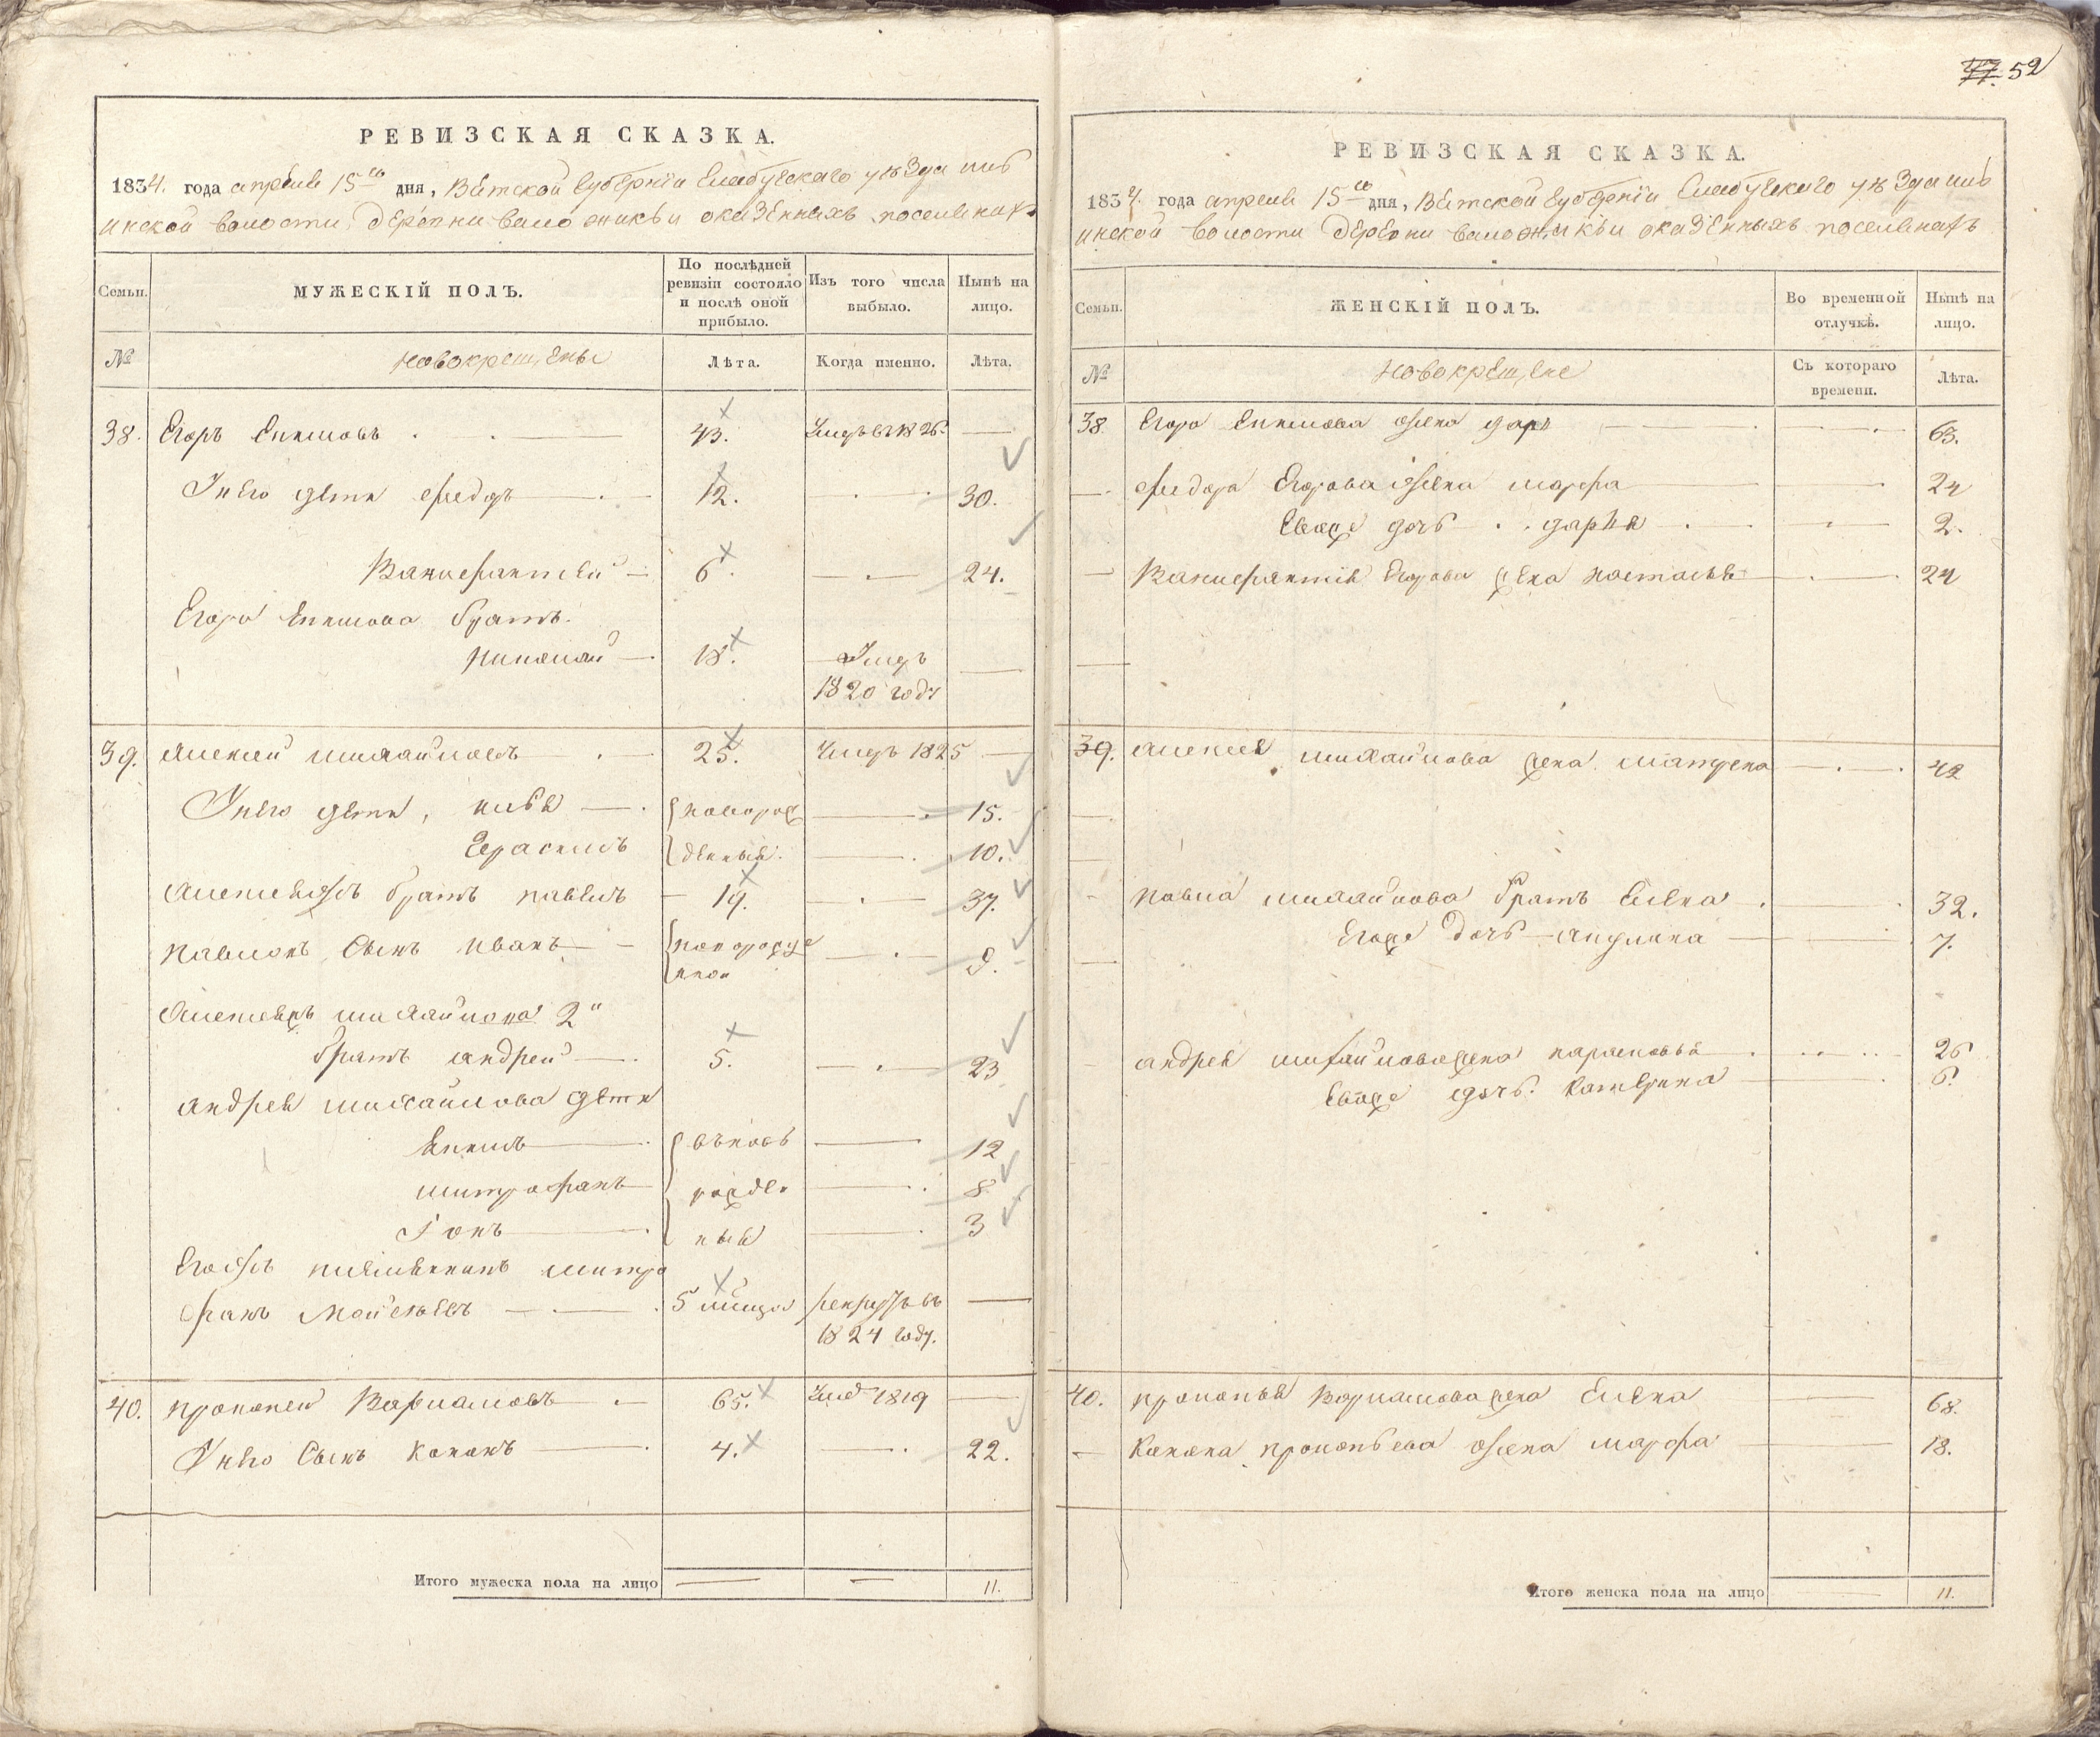 52
РЕВИЗСКАЯ СКАЗКА.
1834. года апреля 15го дня, Вятской губернiи Елабугскаго уѣзда
инской волости деревни оказенныхъ поселянахъ
Семьи.
МУЖЕСКIЙ ПОЛЪ.
По послѣдней ревизiи состояло и послѣ оной прибыло.
Изъ того числа выбыло.
Нынѣ на лицо.
№
новокрещены
Лѣта.
Когда именно.
Лѣта.
38. Егоръ Екимовъ 43. Умръ въ 1826.
Унего дети Федръ 12. 30.
Ванифантей 6. 24.
Егора Екимова братъ
Николай 18. Умръ
1820 году
39. Алексей михайловъ 25. Умръ 1825
Унего дети, 15.
Герасимъ 10.
Алексеяжъ братъ павелъ 19. 37.
павловъ Сынъ иванъ 9.
Алексеяжъ михайлова 2й
братъ андрей 5. 23
андрея михайлова дети
Якимъ вновь 12
митрофанъ рожде 8
Iонъ ныя 3
Егожъ племянникъ митро
фанъ Мойсеевъ 5 месяцъ рекрутъ въ
1824 году.
40. прокопей Варламовъ 65. Умръ 1819
Унего Сынъ Кононъ 4. 22.
Итого мужеска пола на лицо 11.
РЕВИЗСКАЯ СКАЗКА.
1834. года апреля 15го дня, Вятской губернiи Елабугскаго уѣзда
инской волости деревни оказенныхъ поселянахъ
Семьи.
ЖЕНСКIЙ ПОЛЪ.
Во временной отлучкѣ.
Нынѣ на лицо.
№
новокрещене
Съ котораго времени.
Лѣта.
38. Егора Екимова жена даря 63.
Федора Егорова жена марфа 24
Еваже дочь дарья 2.
Ванифантия Егорова жена настасья 24
39. Алексея михайлова жена матрена 42
павла михайлова братъ Елена 32.
Егоже дочь 7.
андрея михайлова жена парасковья 26
Еваже дочь. Катерина 6.
40. прокопья Варламова жена Елена 68.
Конона прокопьева жена марфа 18.
Итого женска пола на лицо 11.